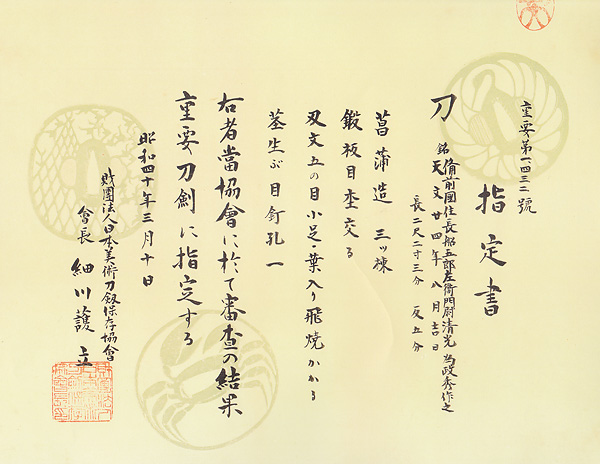 重要第一四三二號
指定書
刀 銘 備前國住長船五郎左衛門尉清光 為政秀作之
天文廿四年八月吉日
長二尺二寸三分 反五分
菖蒲造 三ッ棟
鍛板目杢交る
刃文五の目小足葉入り飛焼かかる
茎生ぶ目釘孔一
右者當協會に於て審査の結果
重要刀剣に指定する
昭和四十年三月十日
財團法人日本美術刀劔保存協會
會長 細川護立